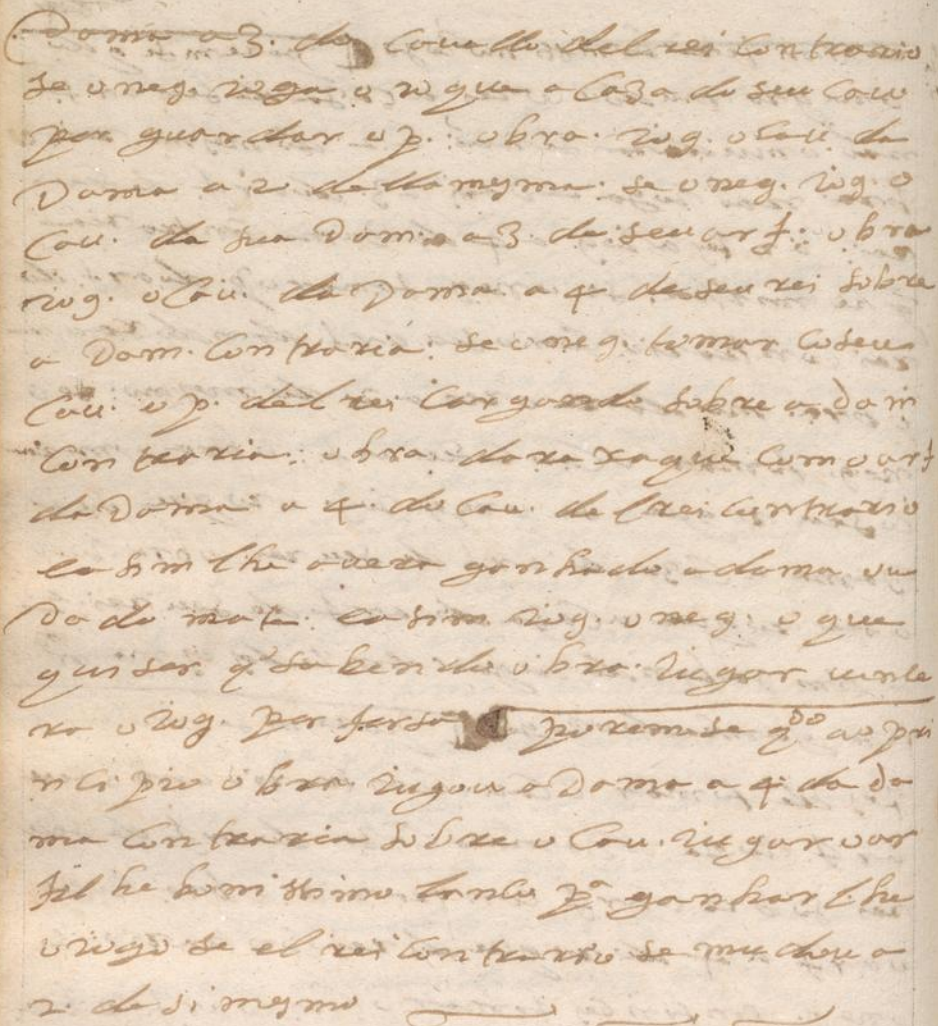 Dama a 3. do cauallo del rei contrario
se o neg. ioga o roque a caza do seu cau
por guardar o p. o bra. iog. o cau. da
Dama a 2 della mesma. se o neg. iog. o
cau. da sua Dama a 3 de seu arf. o bra
iog. o cau. da Dama a 4 de seu rei sobre
a Dam. contraria. se o neg. tomar co seu
cau. o p. del rei cargando sobre a dam
contraria. o bra. dara xaque com o arf
da Dama a 4 do cau. del rei contrario
e asim lhe auera ganhado a dama ou
Dado mate. e asim iog. o neg. o que
quiser q̃ sabendo o bra. iugar uinle
ra o iog. por forsa porem se qdo ao pri
ncipio o bra iugou a Dama a 4 da da
ma contraria sobre o cau. iugar o ar
fil he bonissimo lanco pa ganhar lhe
o iogo se el rei contrario se mudou a
2 de si mesmo